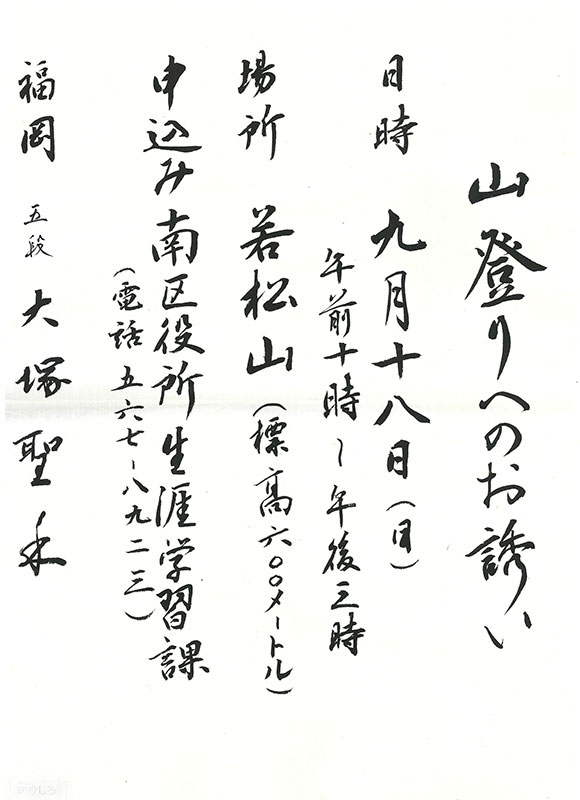 山登りへのお誘い
日時 九月十八日(日)
午前十時〜午後三時
場所 若松山(標高六〇〇メートル)
申込み 南区役所生涯学習課
(電話 五六七-八九二三)
福岡 五段 大塚聖永
のりしろ